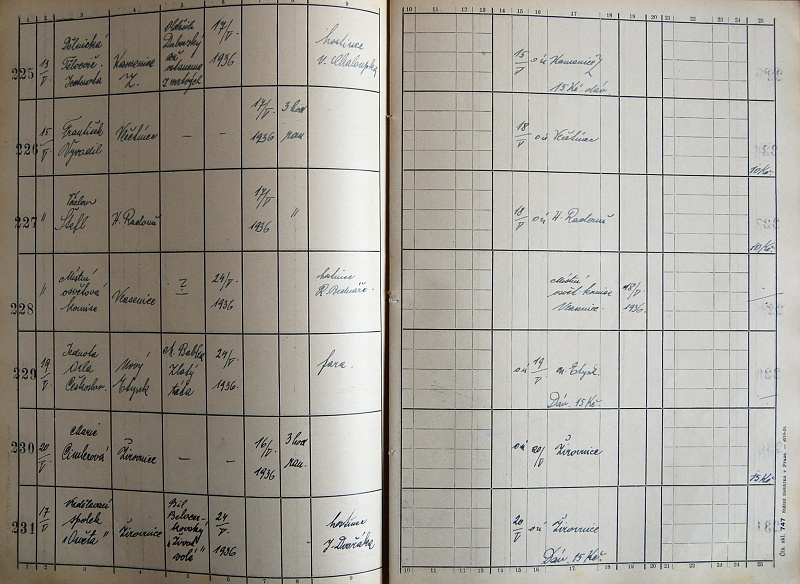 1 2 3 4 5 6 7 8 9
10 11 12 13 14 15 16 17 18 19 20 21 22 23 24 25
225
13/V
Dělnická
Tělocvič.
Jednota
Kamenice
z mrtvých
17/V.
1936
hostinec
15/V
Kamenice
15 Kč dáv.
226
15/V
František
Vyvadil
Včelnice
—
—
17/V.
1936
3 hod
ran.
18/V
Včelnice
10 Kč.
227
"
Václav
Štefl
H. Radouň
17/V.
1936
"
18/V
H. Radouň
10 Kč.
228
"
Místní
osvětová
komise
Vlasenice
?
24/V
1936
hostinec
Místní
osvět. komise
Vlasenice.
18/V
1936.
229
19/V
Jednota
Orla
Českoslov.
Nový
Etynk
Zlatý
24/V
1936.
fara.
19/V
n. Etynk
Dáv. 15 Kč.
230
20/V
Marie
Cimlerová
Žirovnice
—
—
16/V.
1936
3 hod
ran.
20/V
Žirovnice
15 Kč.
231
17/V
Vzdělávací
spolek
„Osvěta"
Žirovnice
24/V.
1936
hostinec
J. Dvořáka
20/V
Žirovnice
Dáv. 15 Kč.
Čís. skl. 747